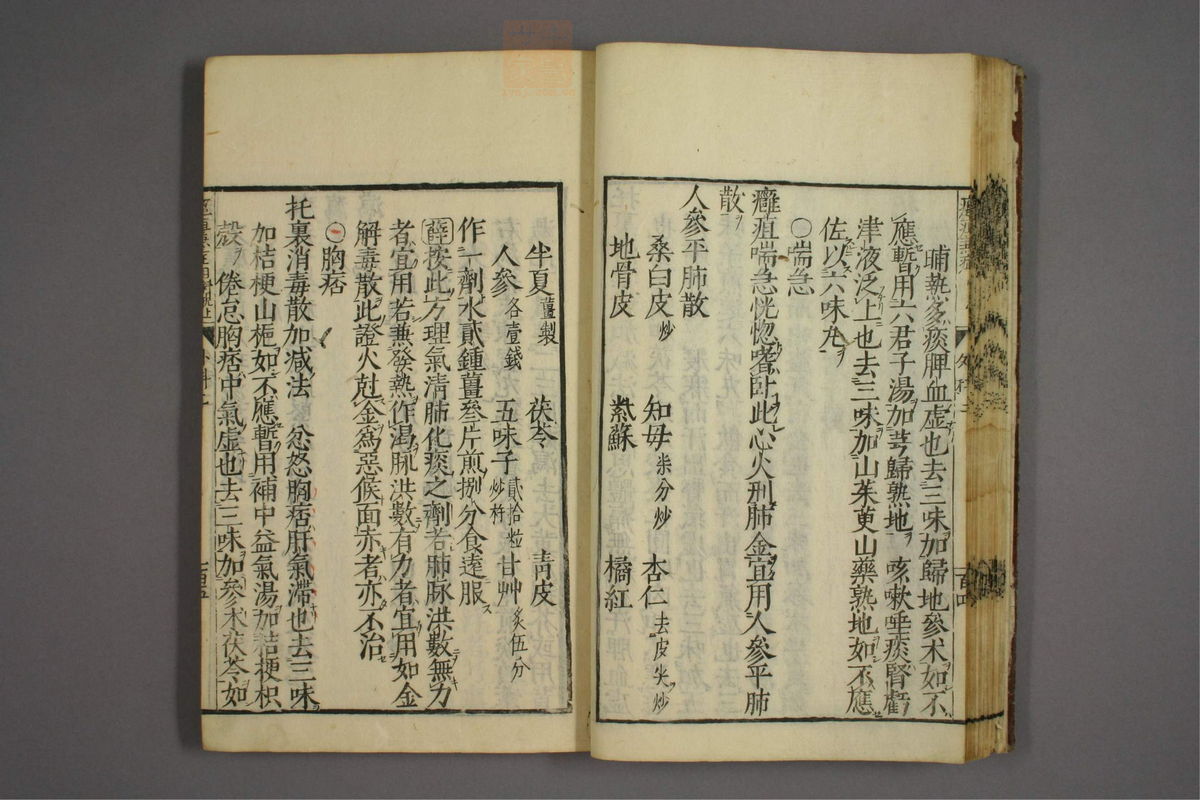 晡熱多痰脾血虛也去三味加歸地參朮如不
應暫用六君子湯加芎歸熟地 咳嗽唾痰腎虧
津液泛上也去三味加山茱萸山藥熟地如不應
佐以六味丸
○喘急
癰疽喘急恍惚嗜臥此心火刑肺金宜用人參平肺
散
人參平肺散
桑白皮炒 知母柒分炒 杏仁去皮尖炒
地骨皮 紫蘇 橘紅
半夏薑製 茯苓 青皮
人參各壹錢 五味子貳拾粒炒杵 甘艸炙伍分
作一劑水貳鍾薑叁片煎捌分食遠服
薛按此方理氣清肺化痰之劑若肺脉洪數無力
者宜用若兼發熱作渴脉洪數有力者宜用如金
解毒散此證火尅金爲惡候面赤者亦不治
○胸痞
托裏消毒散加减法 忿怒胸痞肝氣滯也去三味
加桔梗山梔如不應暫用補中益氣湯加桔梗枳
殼 倦怠胸痞中氣虛也去三味加參朮茯苓如